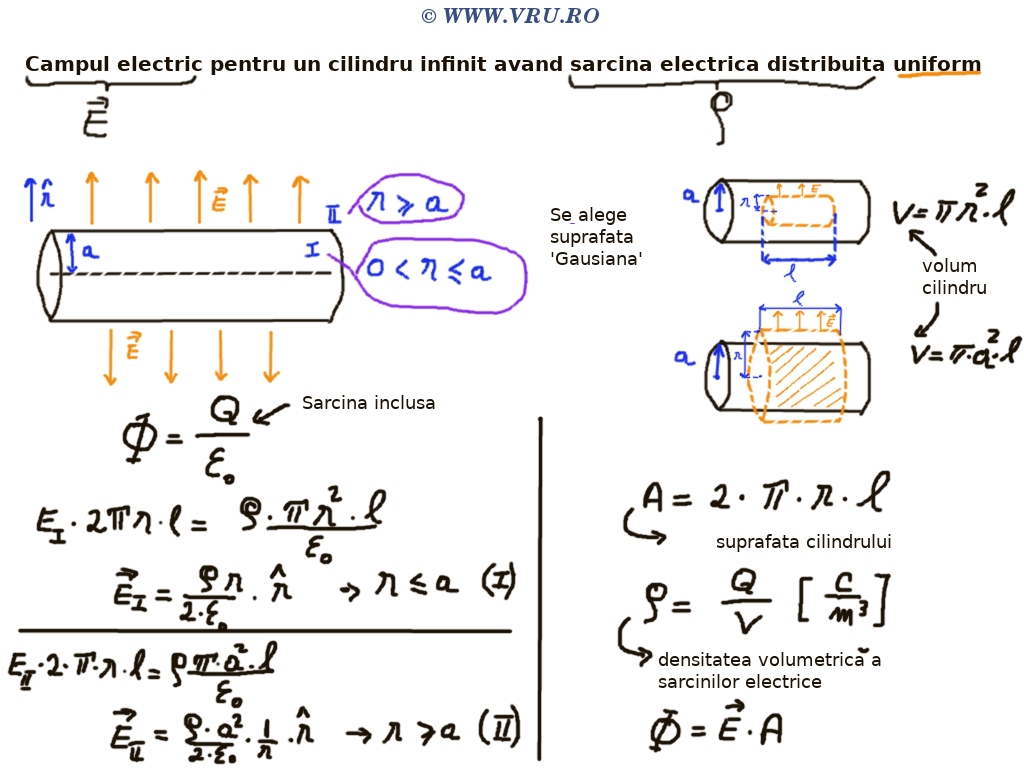 © WWW.VRU.RO
Campul electric pentru un cilindru infinit avand sarcina electrica distribuita uniform
E⃗
ρ
r̂
E⃗
II
r ⩾ a
a
I
0 < r ≤ a
E⃗
Se alege
suprafata
'Gausiana'
a
r
E
l
V = π r² · l
volum
cilindru
l
E⃗
a
r
V = π · a² · l
Φ = Q / ε₀
Sarcina inclusa
E_I · 2πr · l = ρ · π r² · l / ε₀
E⃗_I = ρ r / 2·ε₀ · r̂ → r ≤ a (I)
E_II · 2 · π · r · l = ρ π · a² · l / ε₀
E⃗_II = ρ · a² / 2·ε₀ · 1/r · r̂ → r ⩾ a (II)
A = 2 · π · r · l
suprafata cilindrului
ρ = Q / V [C / m³]
densitatea volumetrică a
sarcinilor electrice
Φ = E⃗ · A